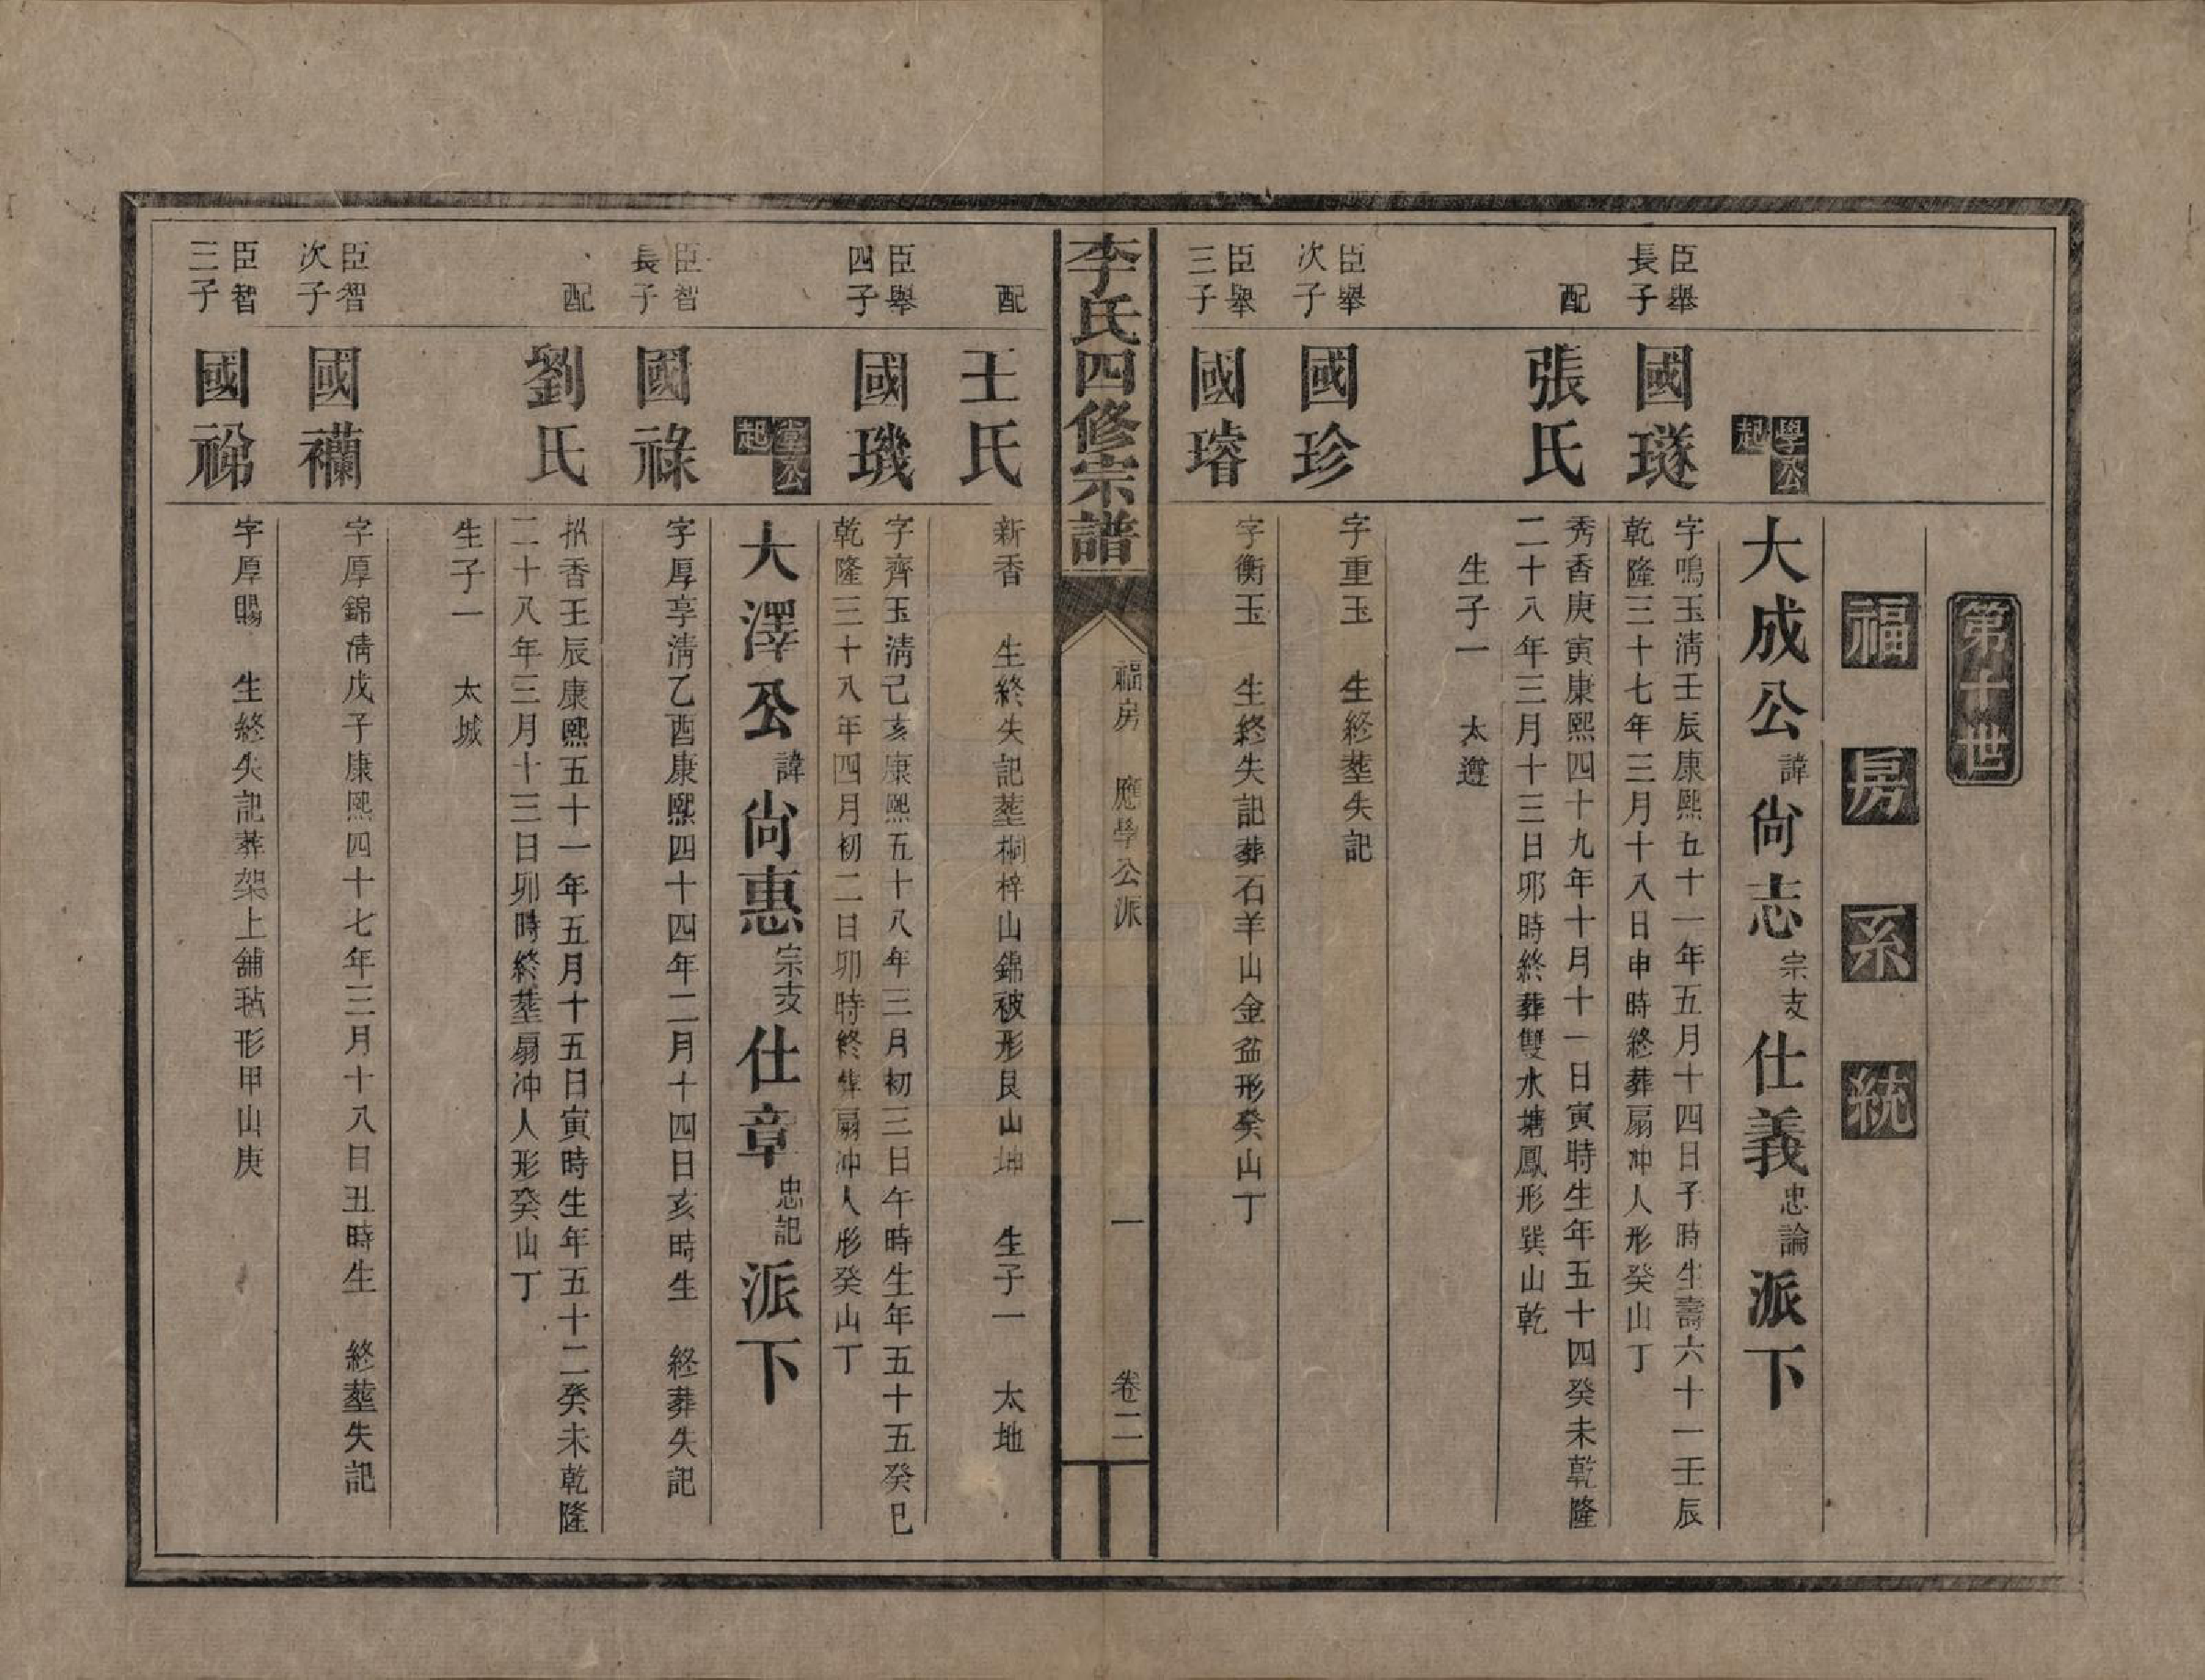 第十世
福房系統
學公起
大成公諱尙志宗支仕義忠論派下
臣舉長子
國璲
字鳴玉淸壬辰康熙五十一年五月十四日子時生壽六十一壬辰
乾隆三十七年三月十八日申時終葬扇冲人形癸山丁
配
張氏
秀香庚寅康熙四十九年十月十一日寅時生年五十四癸未乾隆
二十八年三月十三日卯時終葬雙水塘鳳形巽山乾
生子一　太遵
臣舉次子
國珍
字重玉　生終塟失記
臣舉三子
國璿
字衡玉　生終失記葬石羊山金盆形癸山丁
李氏四修宗譜
福房　應學公派　一　卷二
配
王氏
新香　生終失記塟桐梓山錦被形艮山坤　生子一　太地
臣舉四子
國璣
字齊玉淸己亥康熙五十八年三月初三日午時生年五十五癸巳
乾隆三十八年四月初二日卯時終葬扇冲人形癸山丁
堂公起
大澤公諱尙惠宗支仕章忠記派下
臣智長子
國祿
字厚享淸乙酉康熙四十四年二月十四日亥時生　終葬失記
配
劉氏
招香壬辰康熙五十一年五月十五日寅時生年五十二癸未乾隆
二十八年三月十三日卯時終塟扇冲人形癸山丁
生子一　太城
臣智次子
國襽
字厚錦淸戊子康熙四十七年三月十八日丑時生　終塟失記
臣智三子
國祶
字厚賜　生終失記葬架上舖毡形甲山庚